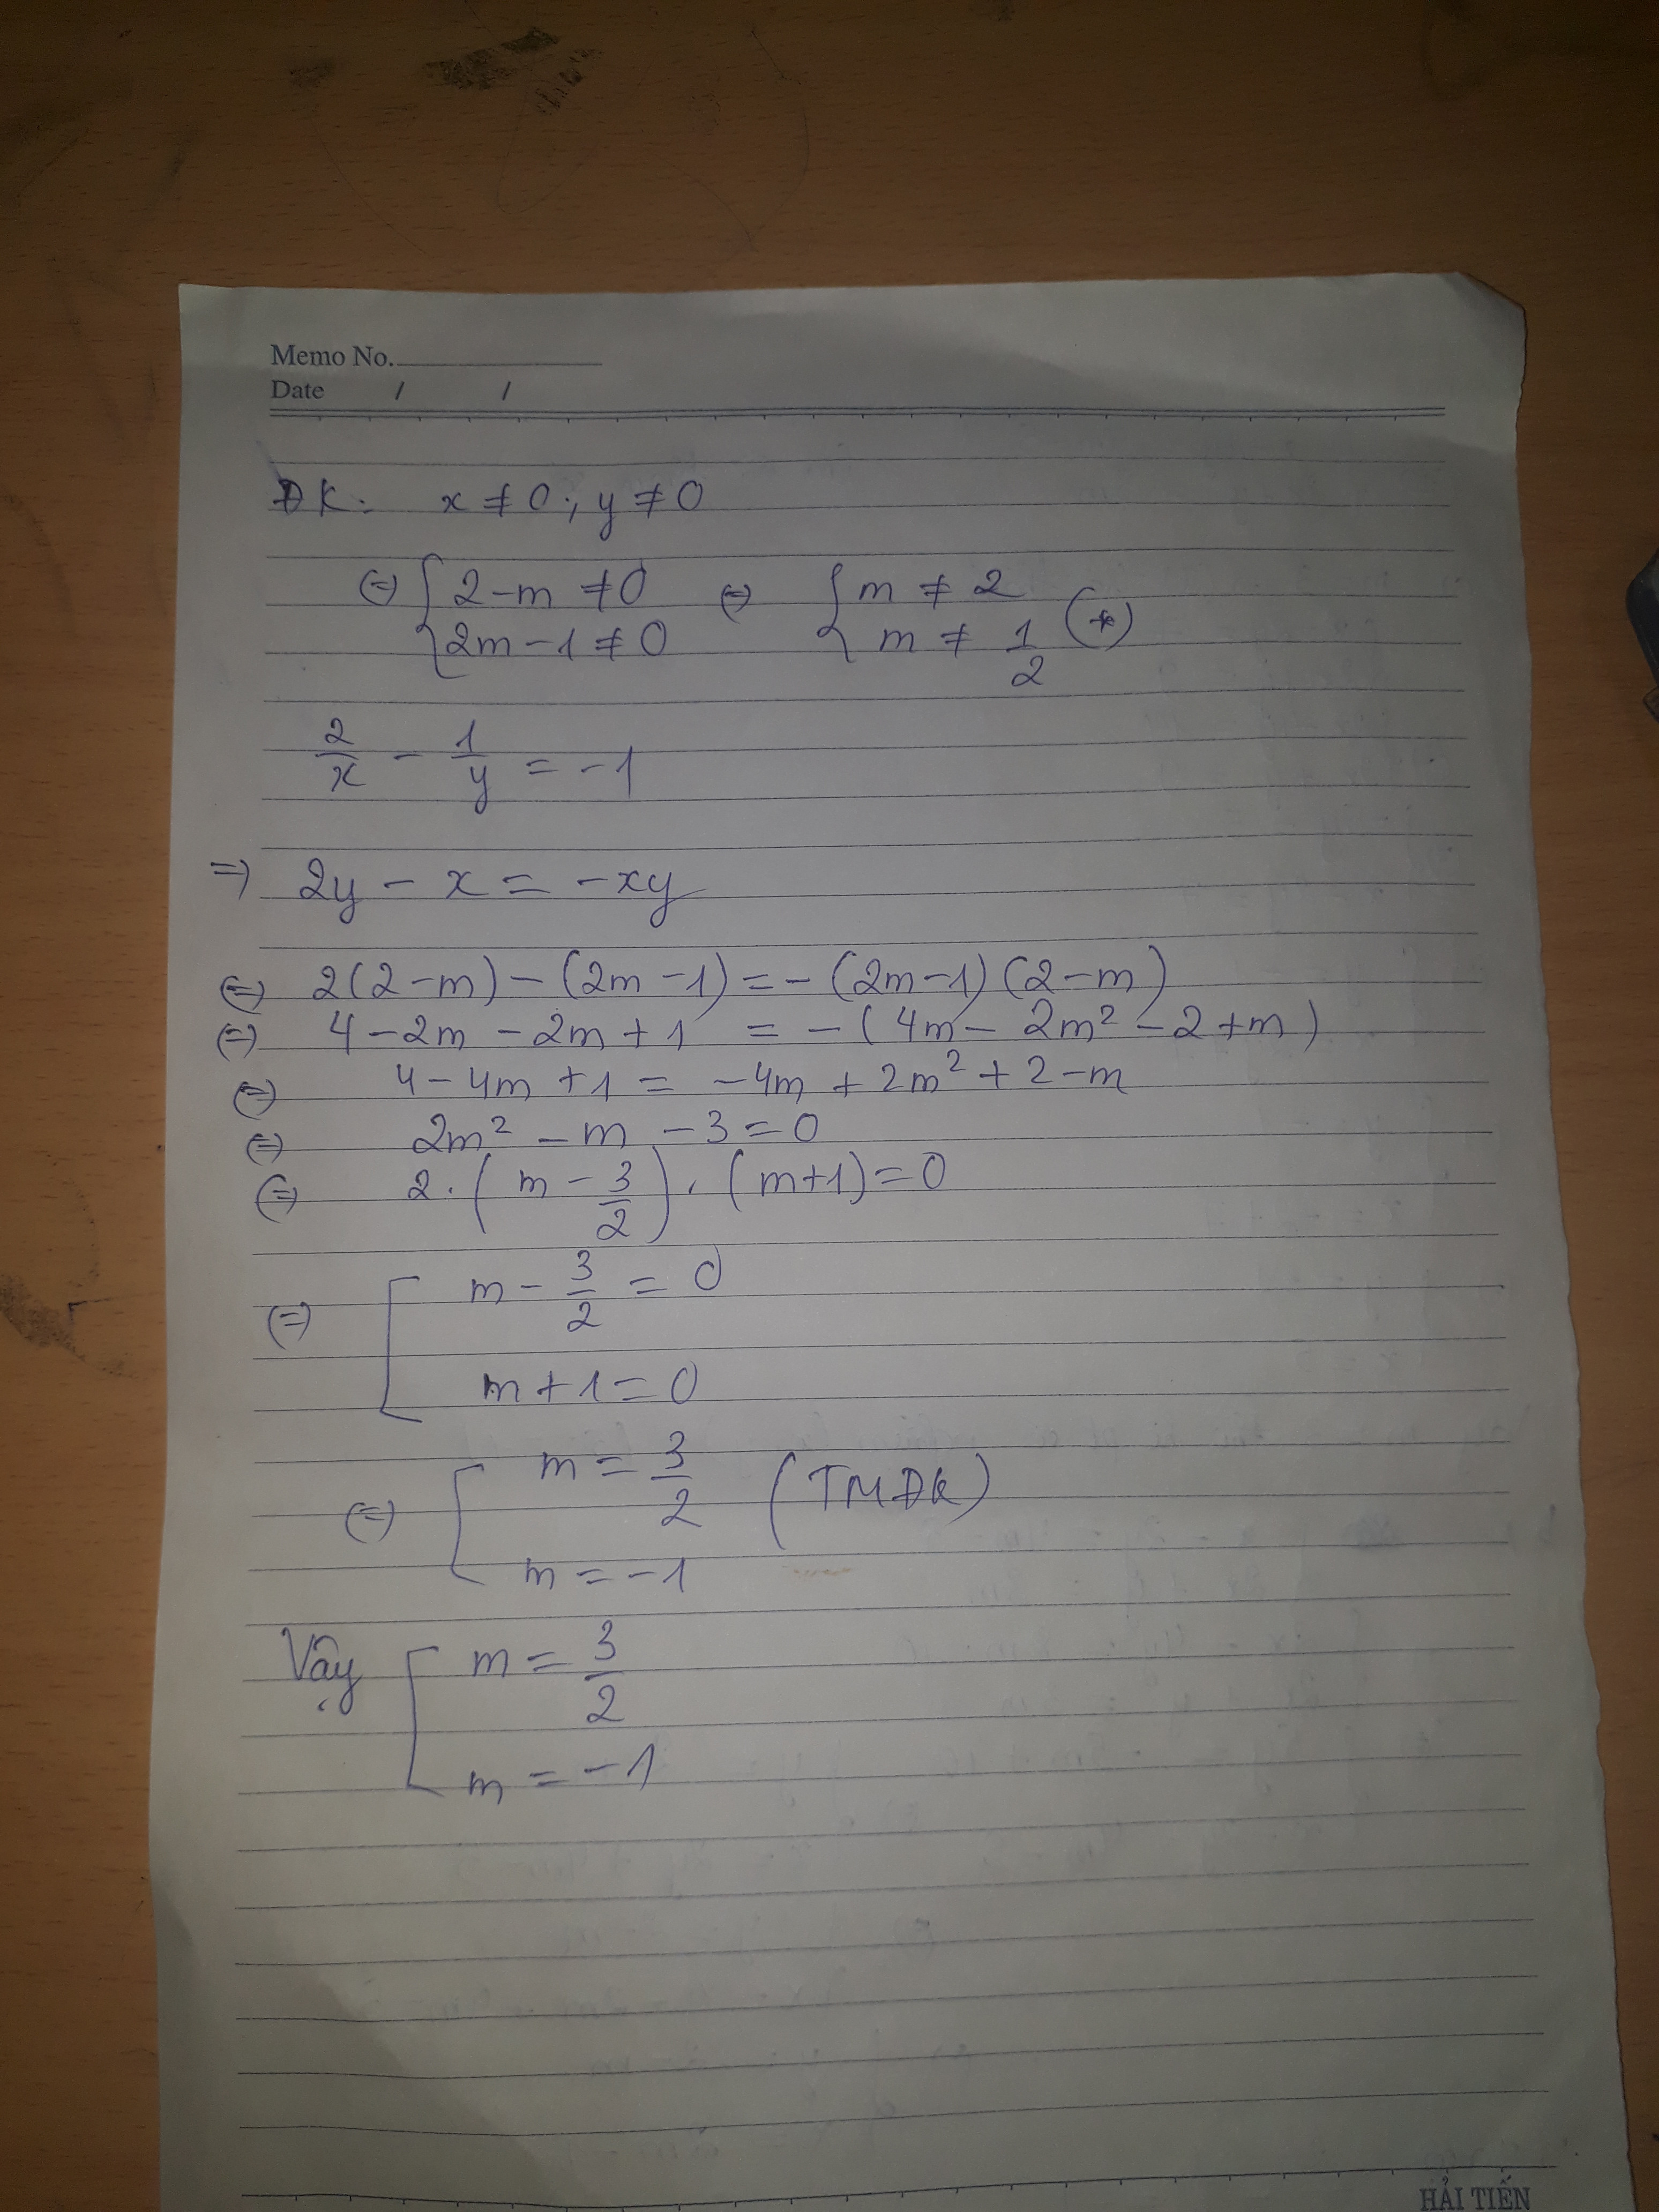 Memo No.
Date / /
ĐK: x ≠ 0 ; y ≠ 0
(=) { 2 - m ≠ 0 (=) { m ≠ 2
2m - 1 ≠ 0 m ≠ 1/2 (*)
2/x - 1/y = -1
=) 2y - x = -xy
(=) 2(2-m) - (2m-1) = -(2m-1)(2-m)
(=) 4 - 2m - 2m + 1 = -(4m - 2m² - 2 + m)
(=) 4 - 4m + 1 = -4m + 2m² + 2 - m
(=) 2m² - m - 3 = 0
(=) 2. (m - 3/2) . (m+1) = 0
(=) [ m - 3/2 = 0
m + 1 = 0
(=) [ m = 3/2 (TMĐK)
m = -1
Vậy [ m = 3/2
m = -1
HẢI TIẾN